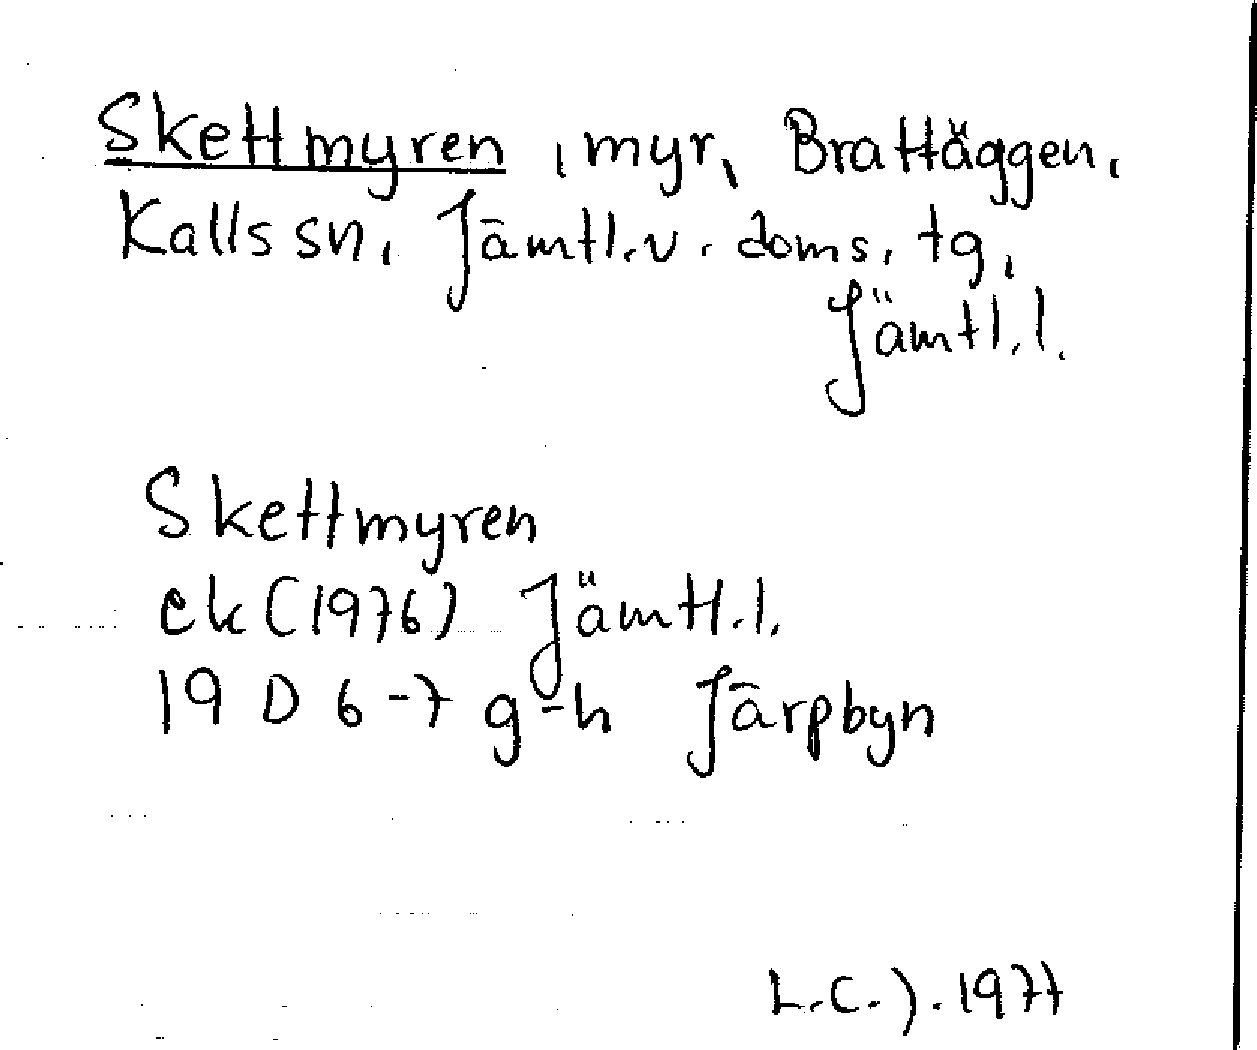 Skettmyren, myr, Brattäggen,
Kalls sn, Jämtl.v. doms. tg,
Jämtl.l.
Skettmyren
ek (1976) Jämtl.l.
19 D 6-7 g-h Järpbyn
L.C.J. 1977